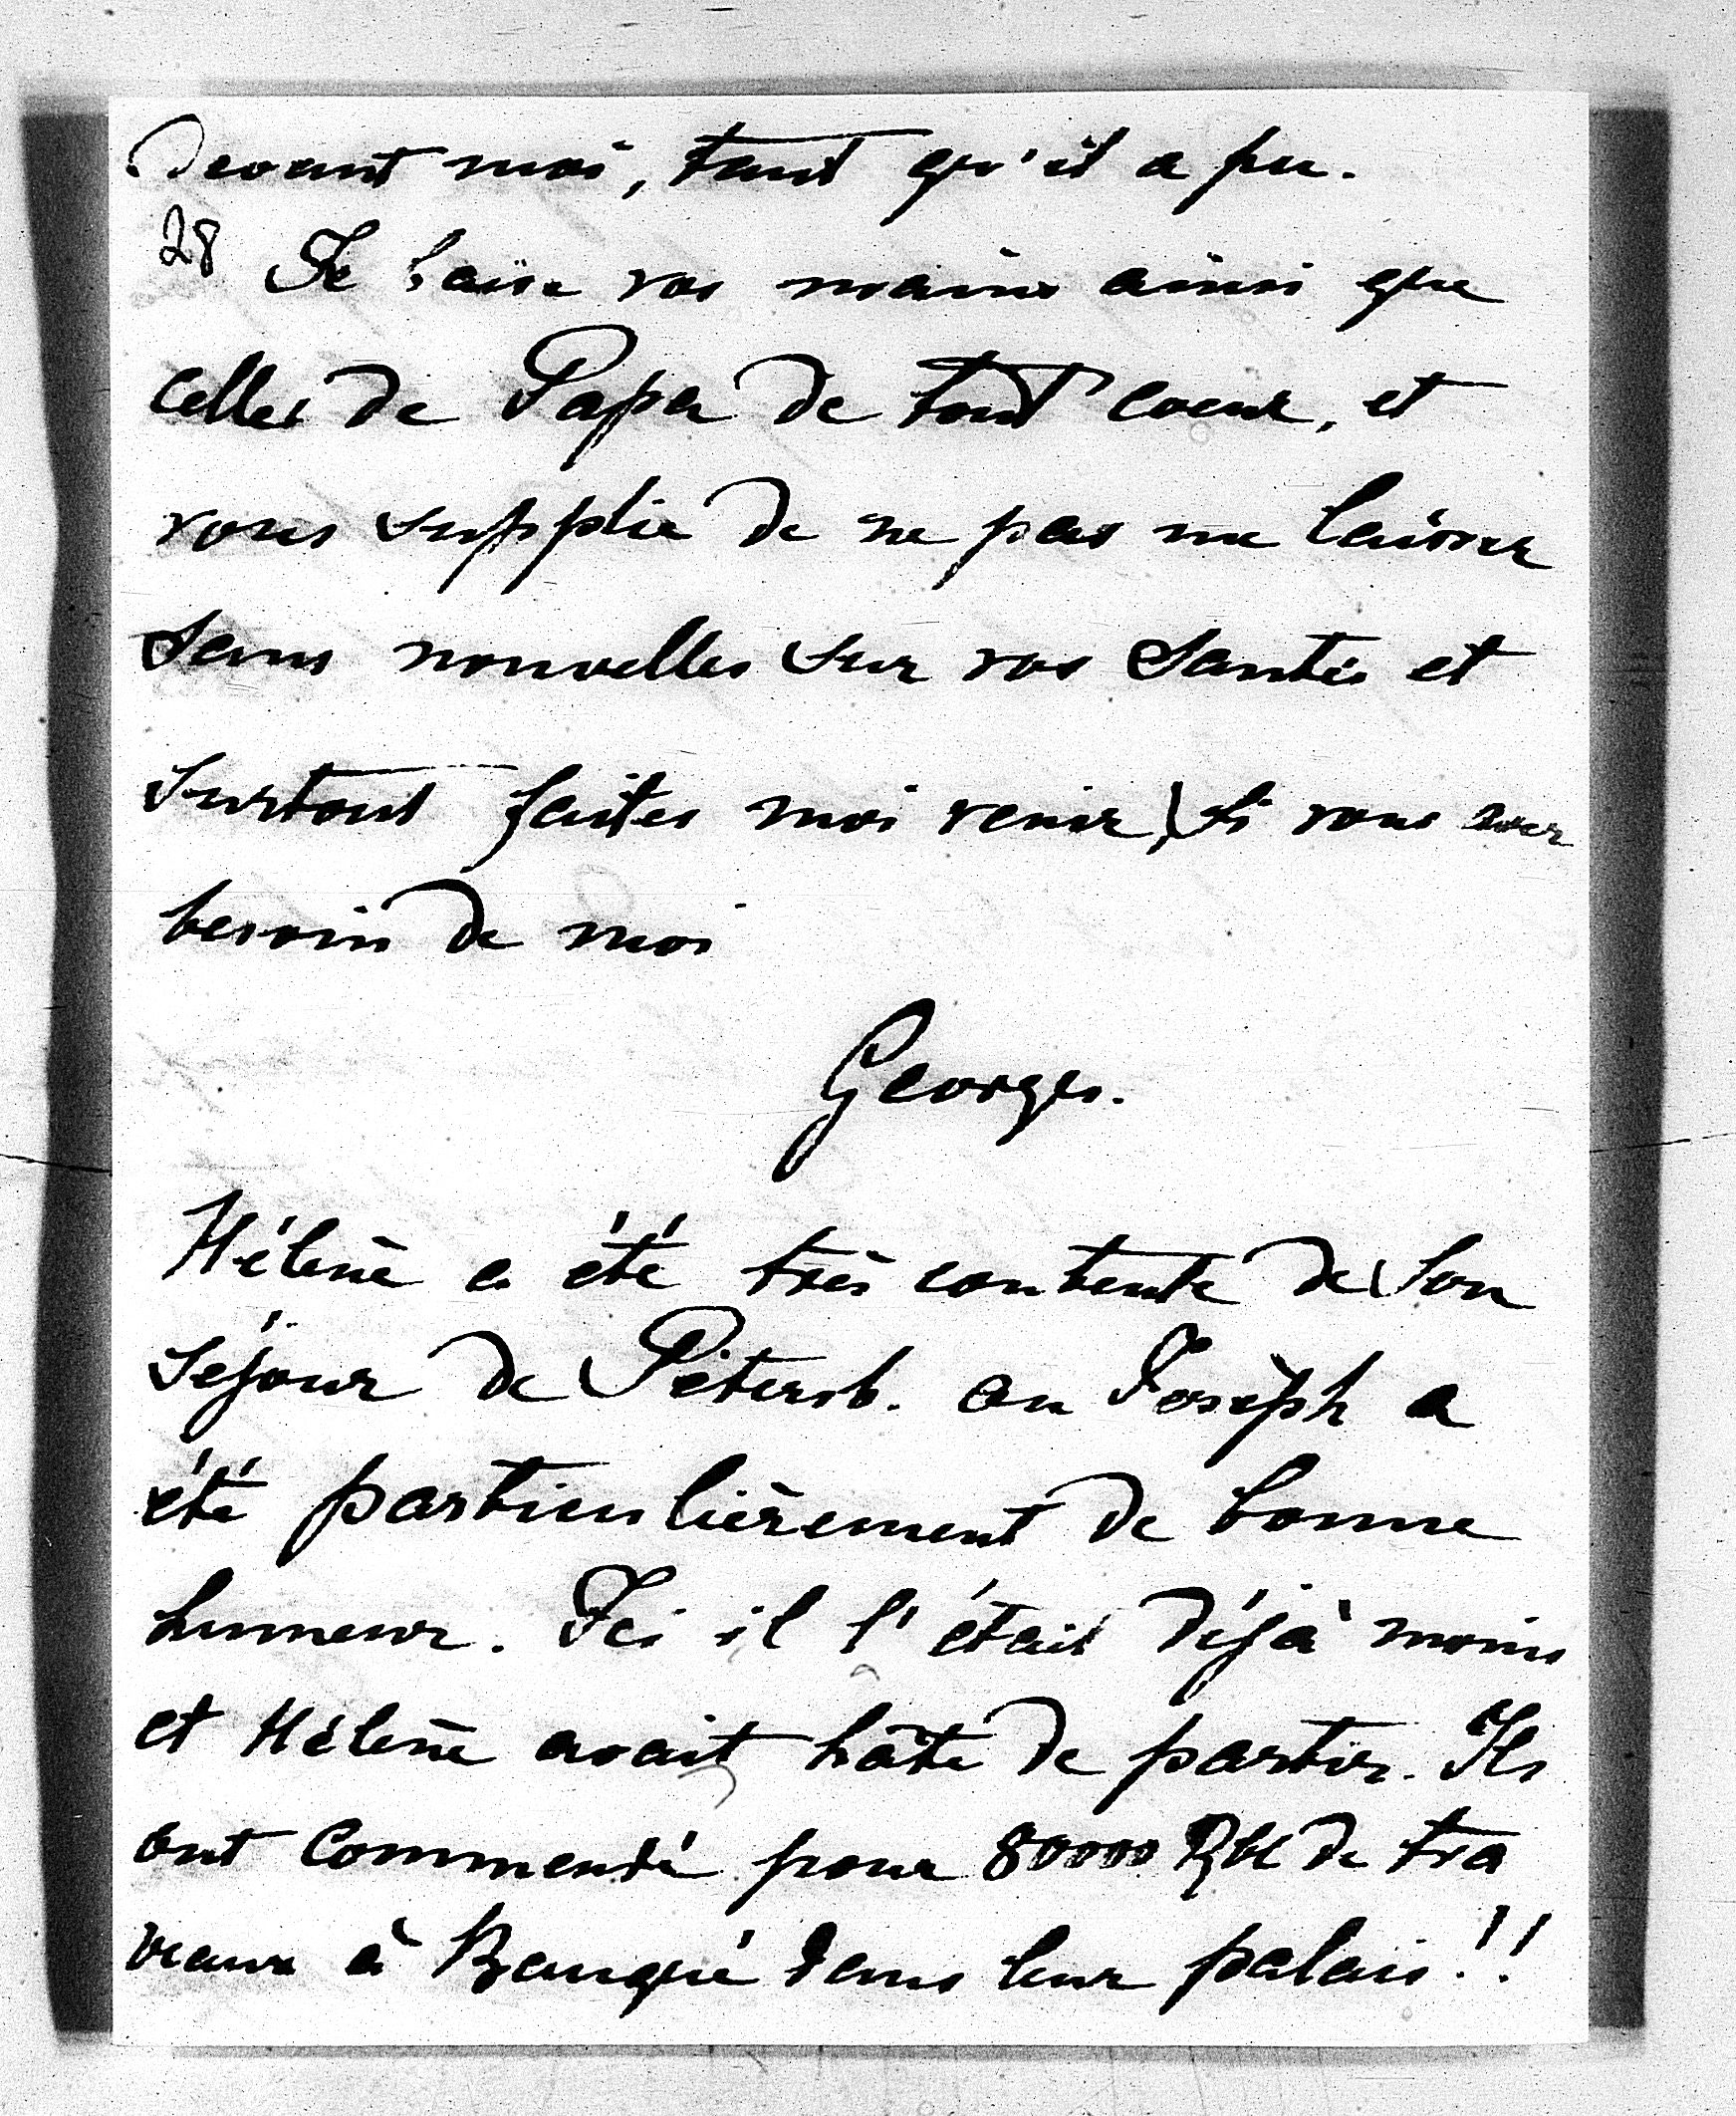 Devant moi, tant qu'il a pu.
28 Je baise vos mains ainsi que
celles de Papa de tout coeur, et
vous supplie de ne pas me laisser
sans nouvelles sur vos santés et
surtout faites moi venir, si vous avez
besoin de moi
Georges.
Hélène a été très contente de son
séjour de Pétersb. ou Joseph a
été particulièrement de bonne
humeur. Ici il l'était déjà moins
et Hélène avait hâte de partir. Ils
ont commendé pour 80000 Rbl de tra
veaux à Banqué dans leur palais!!